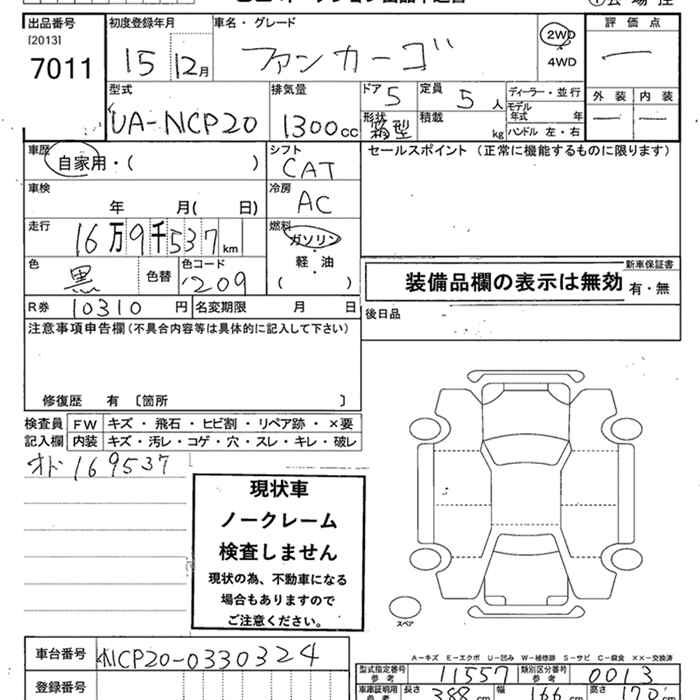 出品番号 初度登録年月 車名・グレード 評価点
[2013]
7011 15 12月 ファンカーゴ 2WD 4WD 一
型式 排気量 ドア 定員 ディーラー・並行 外装 内装
UA-NCP20 1300cc 5 5人 モデル年式 年 一 一
形状 箱型 積載 kg ハンドル 左・右
車歴 自家用・( ) シフト CAT セールスポイント (正常に機能するものに限ります)
車検 年 月( 日) 冷房 AC
走行 16万9千537km 燃料 ガソリン 軽・油 ( )
色 黒 色替 色コード 209
装備品欄の表示は無効 新車保証書 有・無
R券 10310円 名変期限 月 日 後日品
注意事項申告欄(不具合内容等は具体的に記入して下さい)
修復歴 有 〔箇所 〕
検査員 FW キズ・飛石・ヒビ割・リペア跡・×要
記入欄 内装 キズ・汚レ・コゲ・穴・スレ・キレ・破レ
オド 169537
現状車
ノークレーム
検査しません
現状の為、不動車になる
場合もありますので
ご注意ください。
スペア
A-キズ E-エクボ U-凹み W-補修跡 S-サビ C-腐食 ××-交換済
車台番号 NCP20-0330324
型式指定番号 参考 11557 類別区分番号 参考 0013
登録番号
車庫証明用 参考 長さ 388cm 幅 166cm 高さ 170cm